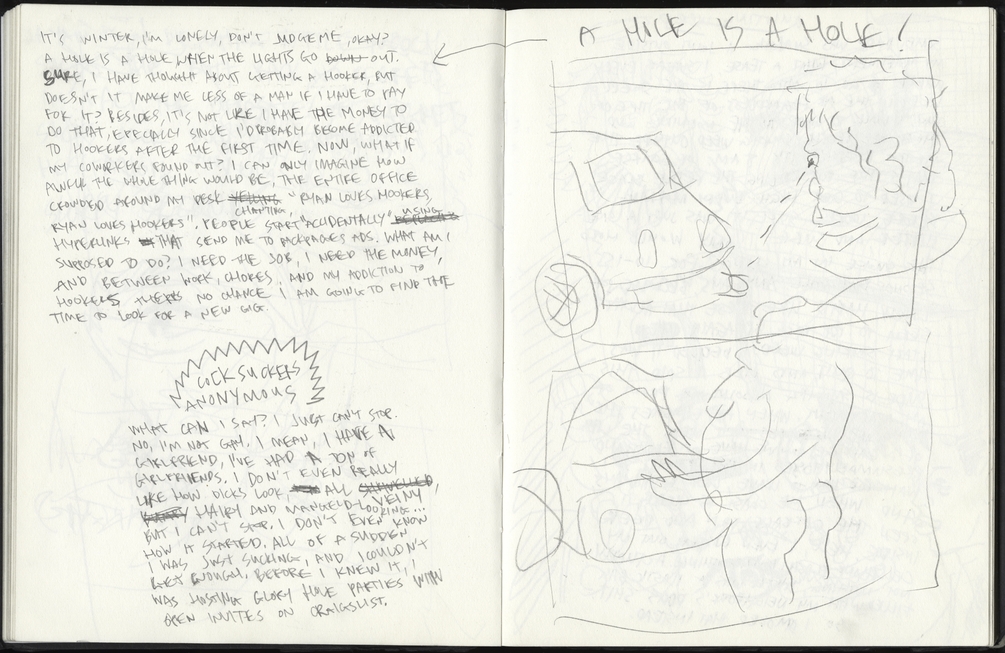 IT'S WINTER, I'M LONELY, DON'T JUDGE ME, OKAY?
A HOLE IS A HOLE WHEN THE LIGHTS GO OUT.
SURE, I HAVE THOUGHT ABOUT GETTING A HOOKER, BUT
DOESN'T IT MAKE ME LESS OF A MAN IF I HAVE TO PAY
FOR IT? BESIDES, IT'S NOT LIKE I HAVE THE MONEY TO
DO THAT, ESPECIALLY SINCE I'D PROBABLY BECOME ADDICTED
TO HOOKERS AFTER THE FIRST TIME. NOW, WHAT IF
MY COWORKERS FOUND OUT? I CAN ONLY IMAGINE HOW
AWKUL THE WHOLE THING WOULD BE, THE ENTIRE OFFICE
CROWDED AROUND MY DESK YELLING CHANTING, "RYAN LOVES HOOKERS,
RYAN LOVES HOOKERS". PEOPLE START "ACCIDENTALLY" USING
HYPERLINKS THAT SEND ME TO BACKPAGES ADS. WHAT AM I
SUPPOSED TO DO? I NEED THE JOB, I NEED THE MONEY,
AND BETWEEN WORK, CHORES, AND MY ADDICTION TO
HOOKERS THERES NO CHANCE I AM GOING TO FIND THE
TIME TO LOOK FOR A NEW GIG.
COCK SUCKERS
ANONYMOUS
WHAT CAN I SAY? I JUST CAN'T STOP.
NO, I'M NOT GAY, I MEAN, I HAVE A
GIRLFRIEND, I'VE HAD A TON OF
GIRLFRIENDS, I DON'T EVEN REALLY
LIKE HOW DICKS LOOK, ALL SHRIVELLED, VEINY
HAIRY AND MANGELD-LOOKING...
BUT I CAN'T STOP. I DON'T EVEN KNOW
HOW IT STARTED. ALL OF A SUDDEN
I WAS JUST SUCKING, AND I COULDN'T
GET ENOUGH, BEFORE I KNEW IT, I
WAS HOSTING GLORY HOLE PARTIES WITH
OPEN INVITES ON CRAIGSLIST.
A HOLE IS A HOLE!